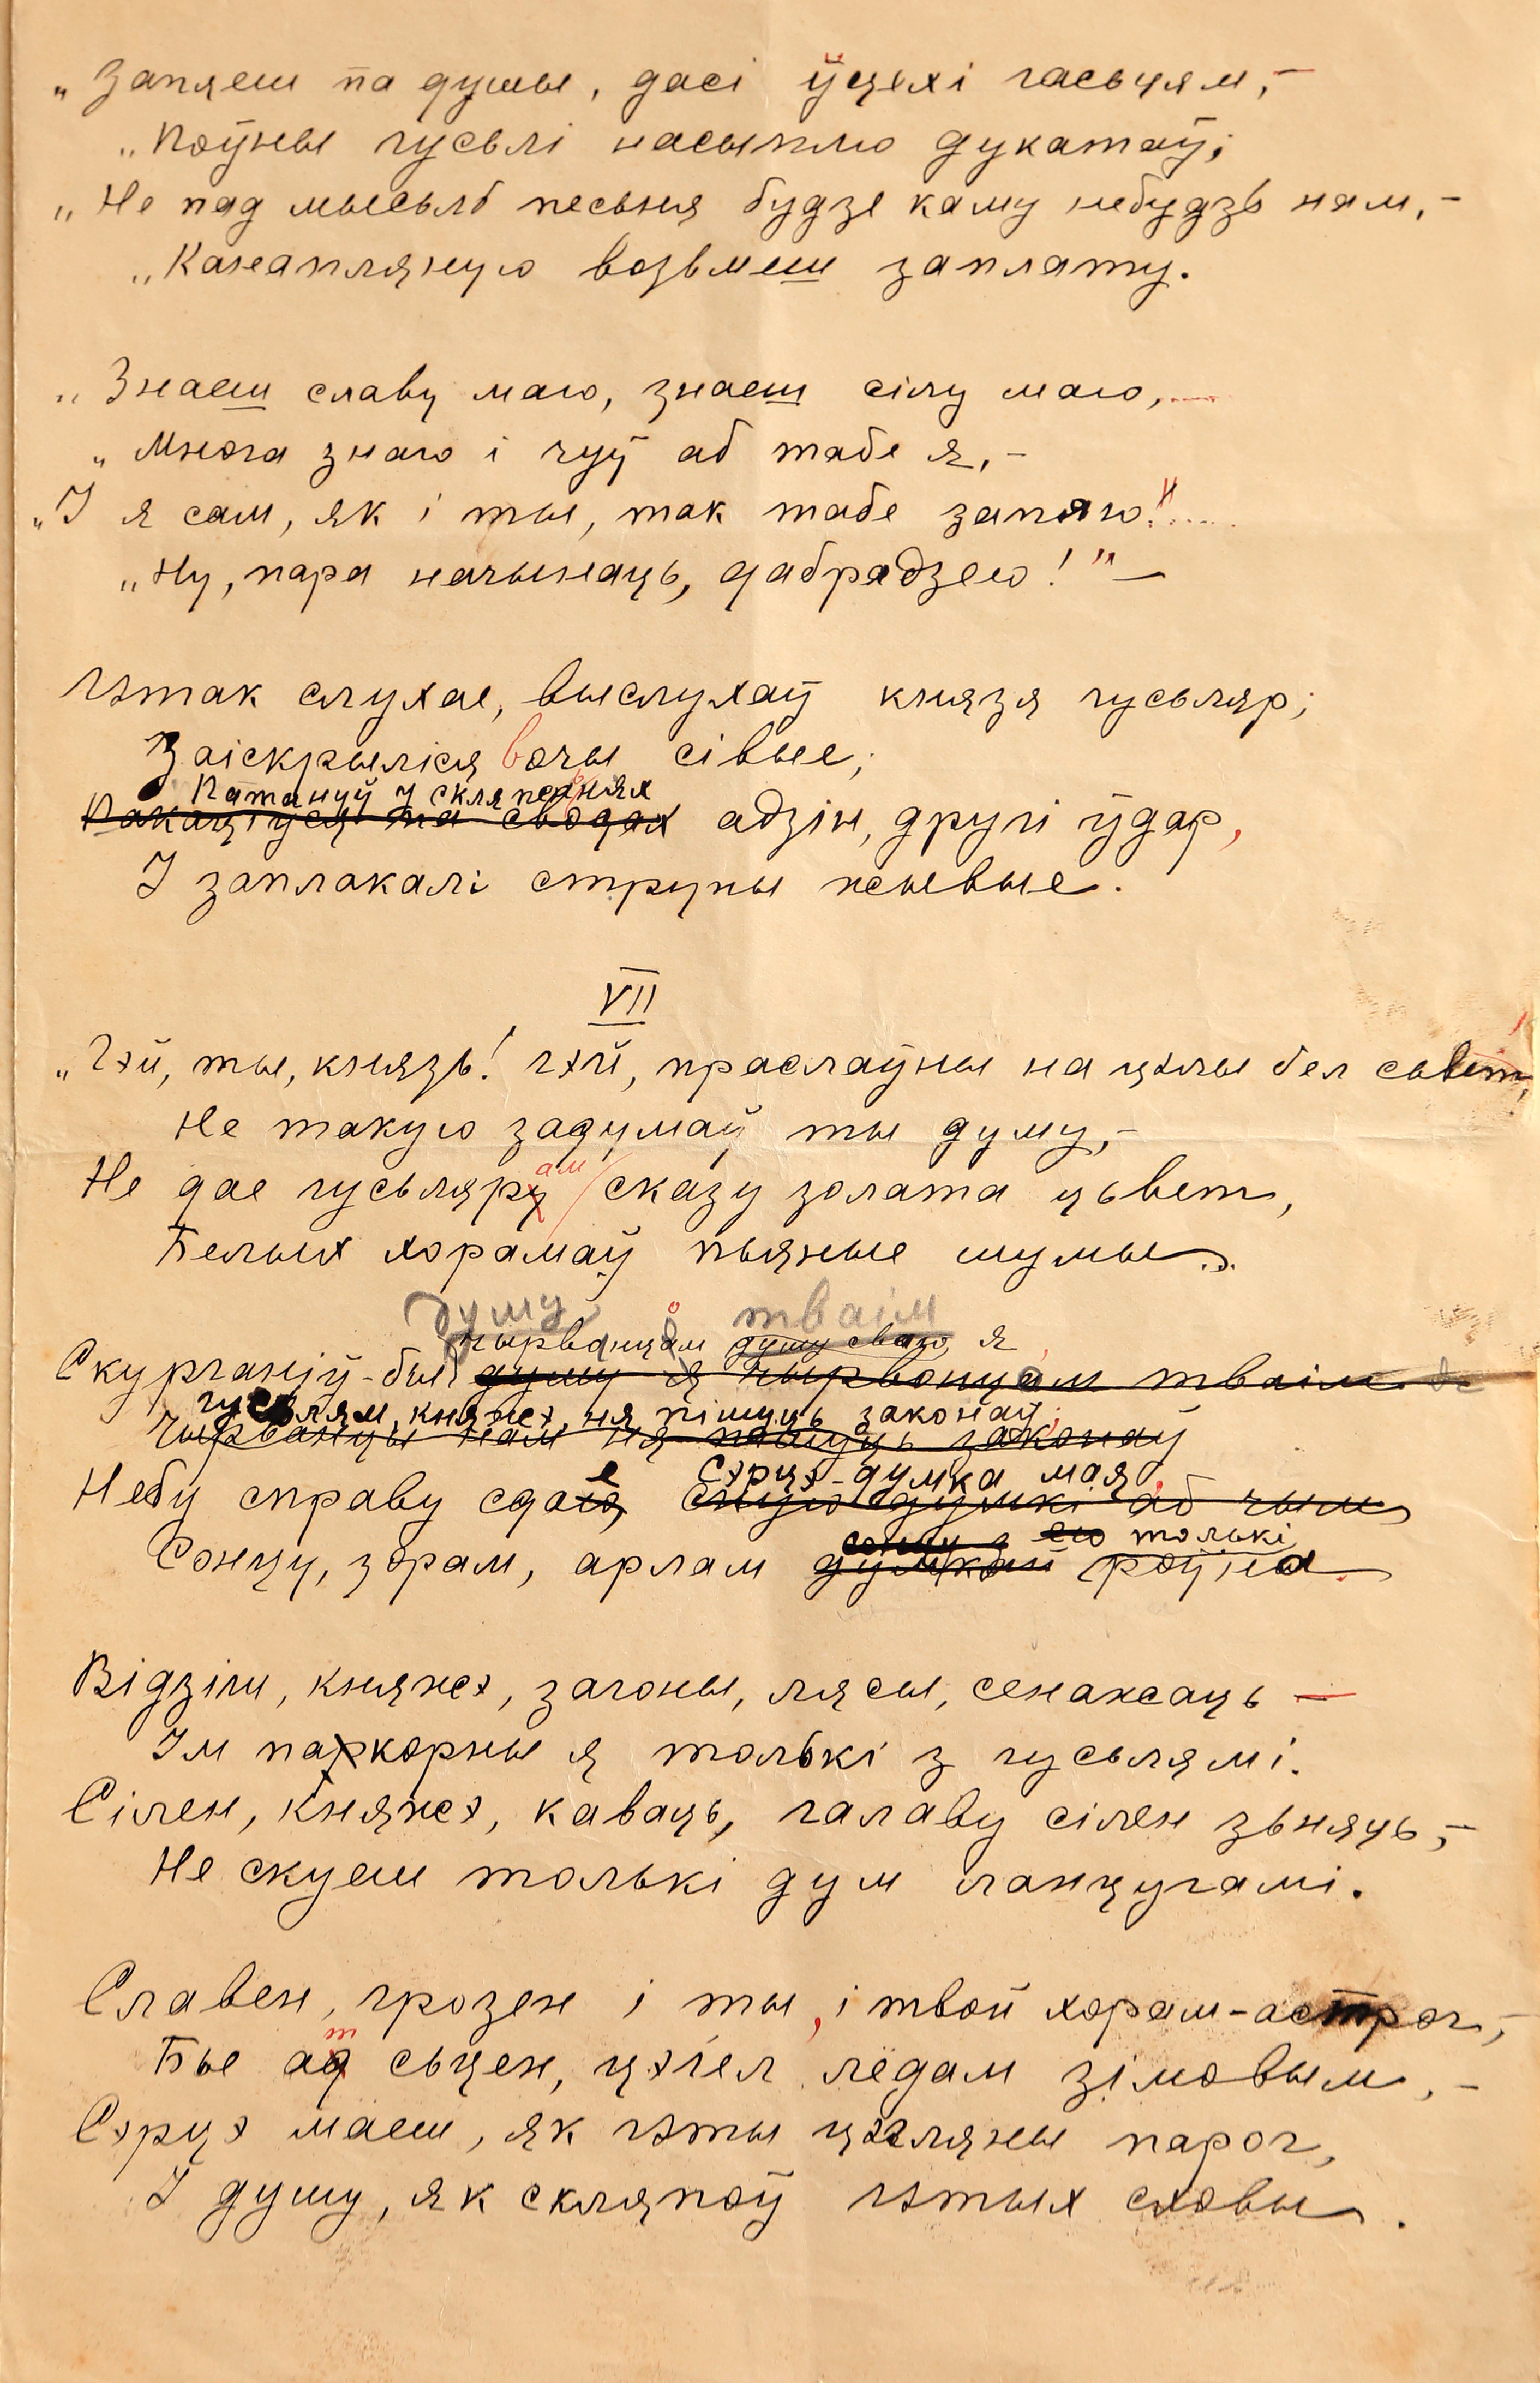 „Запяеш па душы, дасі ўцехі гасьцям,–
„Поўны гусьлі насыплю дукатаў;
„Не пад мысьль песьня будзе каму небудзь нам,–
„Канапляную возьмеш заплату.
„Знаеш славу маю, знаеш сілу маю,....
„Многа знаю і чуў аб табе я,–
„І я сам, як і ты, так табе запяю!"....
„Ну, пара начынаць, дабрадзею!" —
Гэтак слухае, выслухаў князя гусьляр;
Заіскрыліся вочы сівые;
Патануў у скляпеньнях
Пакаціўся па сводах адзін, другі ўдар,
І заплакалі струны жывые.
VII
„Гэй, ты, князь! гэй, праслаўны на цэлы бел сьвет,
Не такую задумаў ты думу,–
Не дае гусьляру ам сказу золата цьвет,
Белых хорамаў пьяные шумы...
душу тваім
чырвонцам душу сваю я
Скурганіў-бы душу я чырвонцам тваім
гусьлям, княжэ, ня пішуць законаў;
Чырвонцы нам ня пішуць законаў
е Сэрцэ-думка мая
Небу справу сдаю, сваю думкі аб чым
сонцу я ею толькі
Сонцу, зорам, арлам думкай роўна.
Відзіш, княжэ, загоны, лясы, сенажаць —
Ім пакорны я толькі з гусьлямі.
Сілен, княжэ, каваць, галаву сілен зьняць,–
Не скуеш толькі дум ланцугамі.
Славен, грозен і ты, і твой хорам-астрог,–
т
Бье ад сьцен, цэгел лёдам зімовым,–
Сэрцэ маеш, як гэты цэгляны парог,
І душу, як скляпоў гэтых сховы.